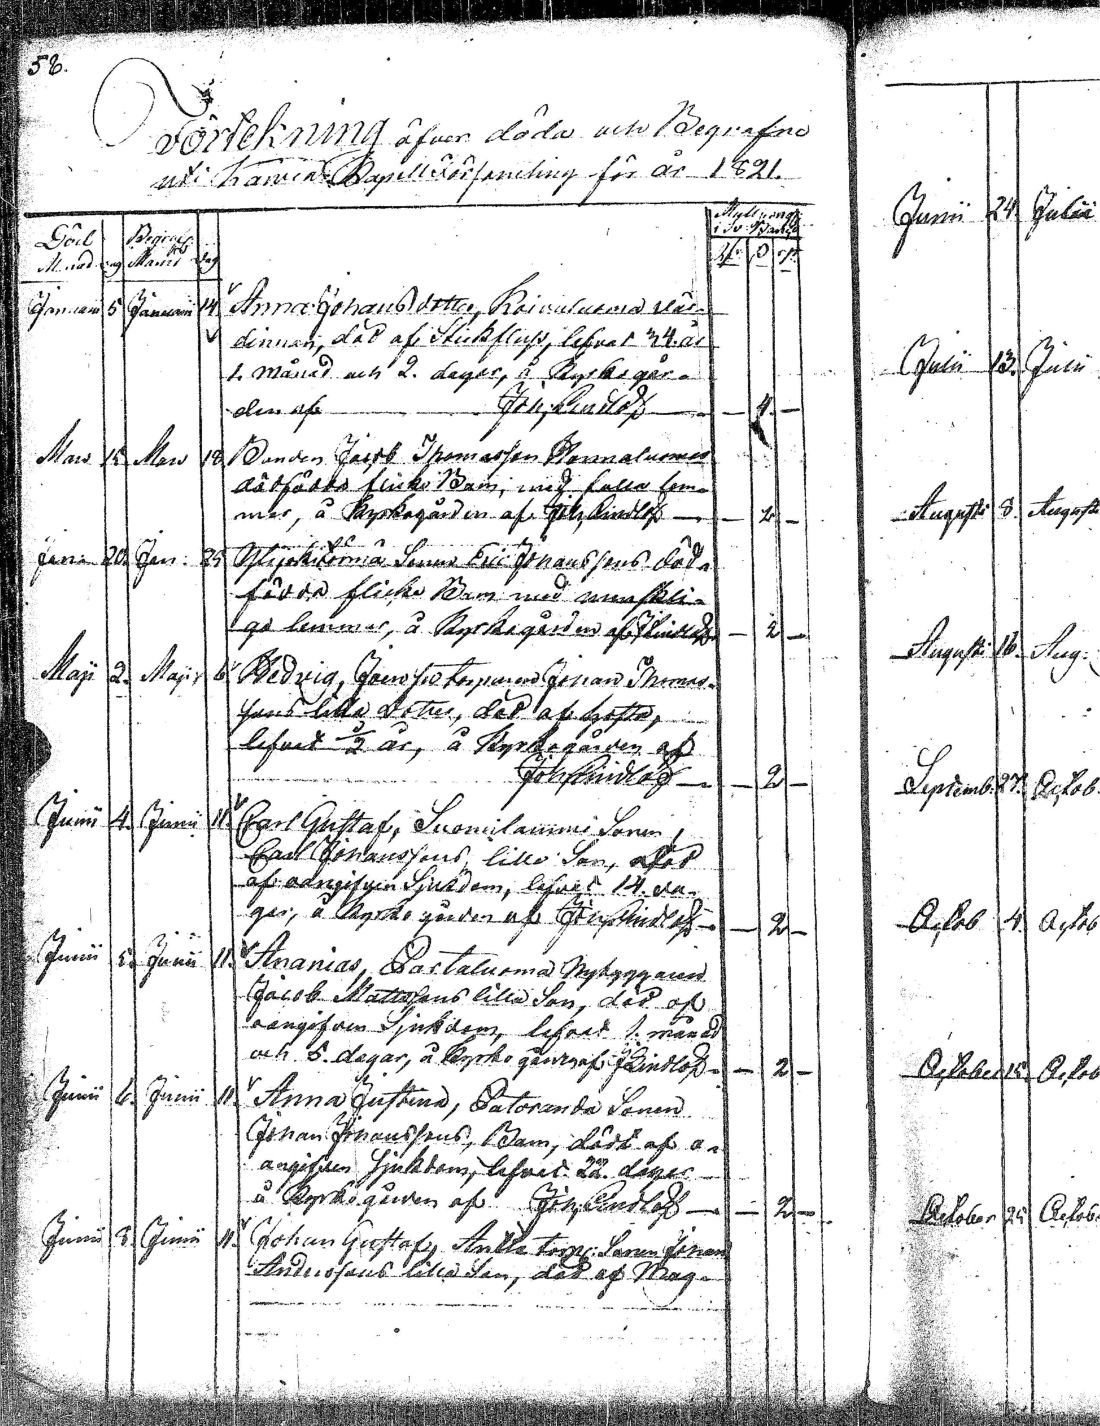 58.
Förtekning öfver döda och Begrafne
uti Kapell Församling för år 1821.
Död Begrafne
Månad dag Månad dag
Januarii 5 Januarii 14 Anna Johans dotter, Koivuluoma vär-
dinnan, död af Stickfluss, lefvat 34. år
1. månad och 2. dagar, å Kyrkogår-
den af Joh. Lindlöf — 4. —
Mars 15 Mars 18 Bonden Jacob Thomasson
dödfödda flicke Barn, med fulla lem-
mar, å Kyrkogården af Joh. Lindlöf — 2 —
20. 25 Sonen Eric Johanssons död-
födda flicke Barn med menskli-
ga lemmar, å Kyrkogården af J. Lindlöf — 2 —
Maji 2. Maji 6 Hedvig, torparen Johan Thomas-
sons lilla dotter, död af hosta,
lefvat 1/2 år, å Kyrkogården af
Joh. Lindlöf — 2 —
Junii 4. Junii 11. Carl Gustaf, Suomilammi Sonen,
Carl Johanssons lille Son, död
af oangifven Sjukdom, lefvat 14. da-
gar, å Kyrko gården af Joh. Lindlöf — 2 —
Junii 5. Junii 11. Ananias, Partaluoma Nybyggaren
Jacob Mattssons lilla Son, död af
oangifven Sjukdom, lefvat 1. månad
och 5. dagar, å Kyrko gården af J. Lindlöf — 2 —
Junii 6. Junii 11. Anna Justina, Sonen
Johan Johanssons, Barn, dödt af o-
angifven sjukdom, lefvat 22. dagar
å Kyrkogården af Joh. Lindlöf — 2 —
Junii 8. Junii 11. Johan Gustaf, torp: Sonen Johan
Anderssons lilla Son, död af Mag-
Junii 24. Julii
Julii 13. Julii
Augusti 8. Augusti
Augusti 16. Aug:
Septemb. 27. Octob.
Octob 4. Octob
October 15. Octob
October 25 Octob.